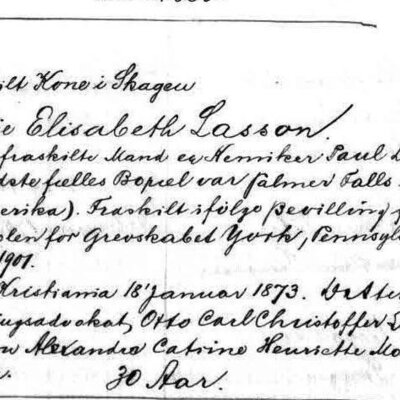 ilt Kone i Skagen
ie Elisabeth Lasson.
fraskilte Mand er Kemiker Paul L
dste fælles Bopæl var Palmer Falls
erika). Fraskilt ifölge Bevilling f
len for Grevskabet York, Pennsyl
1901.
Kristiania 18' Januar 1873. Datter
ugsadvokat, Otto Carl Christoffer L
Alexandra Catrine Henriette Mo
30 Aar.